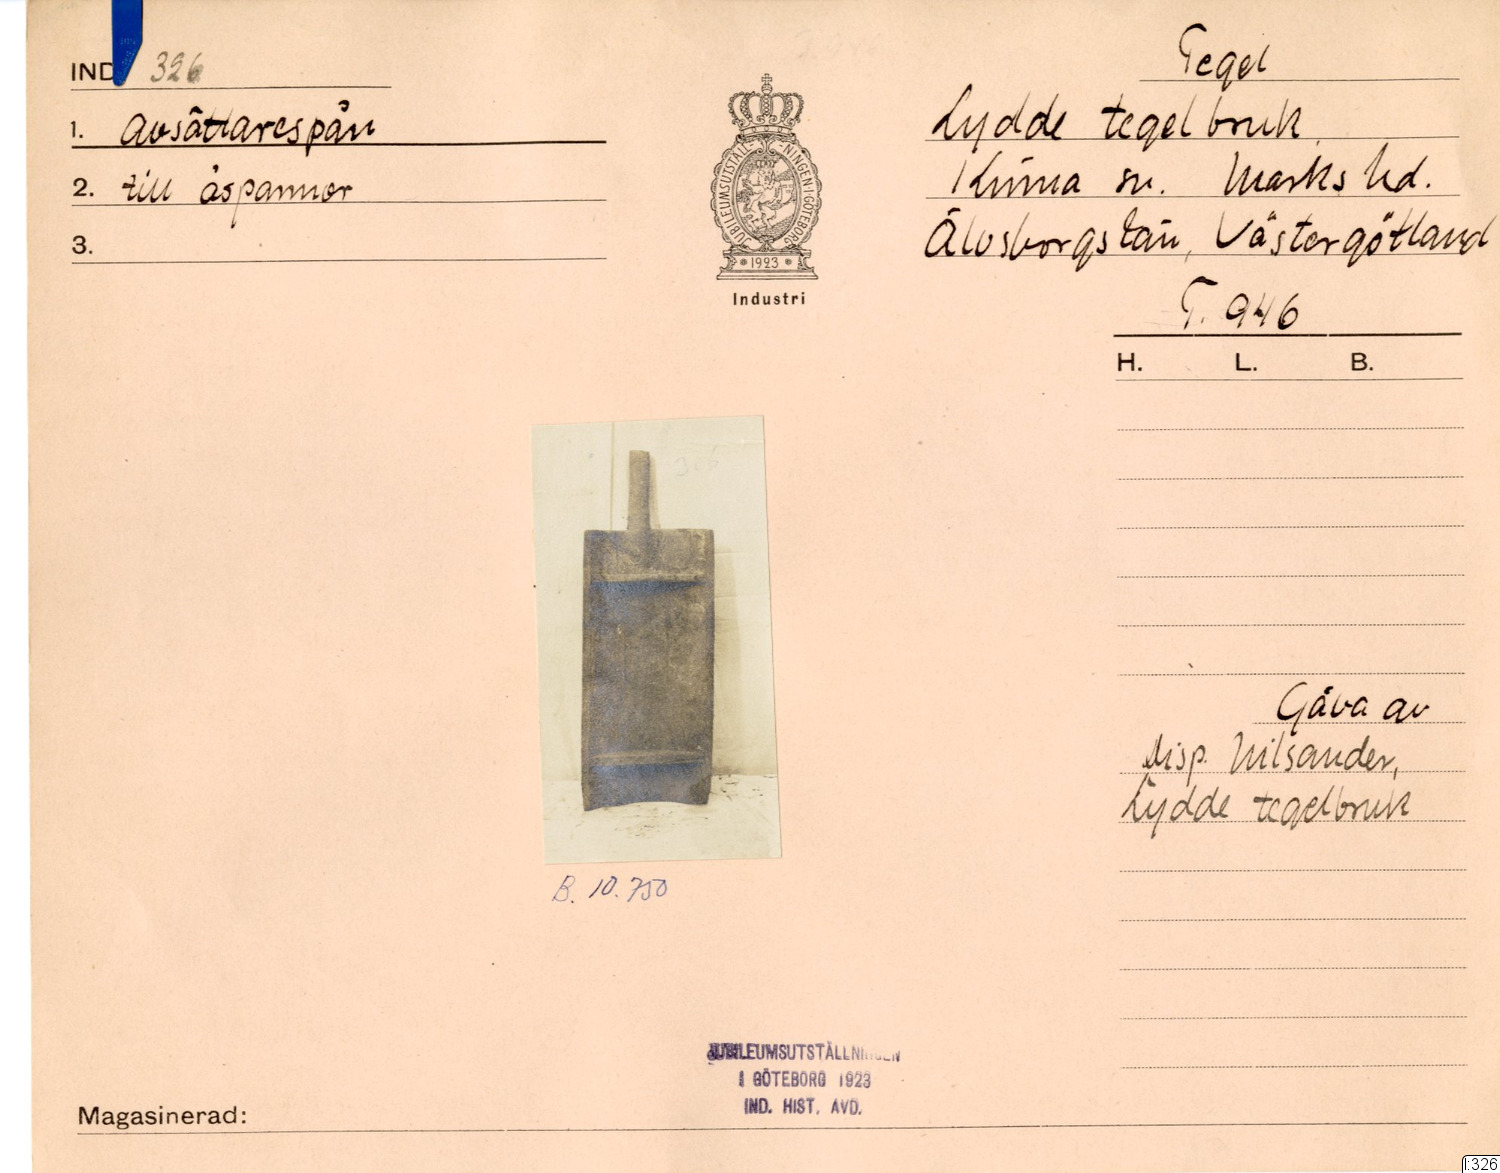 IND 326
1. Avsättarespån
2. till åspannor
3.
JUBILEUMSUTSTÄLLNINGEN I GÖTEBORG
1923
Industri
Tegel
Lydde tegelbruk
Kinna sn. Marks hd.
Älvsborgs län, Västergötland
T. 946
H. L. B.
326
Gåva av
disp. Nilsander,
Lydde tegelbruk
B. 10.750
JUBILEUMSUTSTÄLLNINGEN
I GÖTEBORG 1923
IND. HIST. AVD.
Magasinerad:
I:326